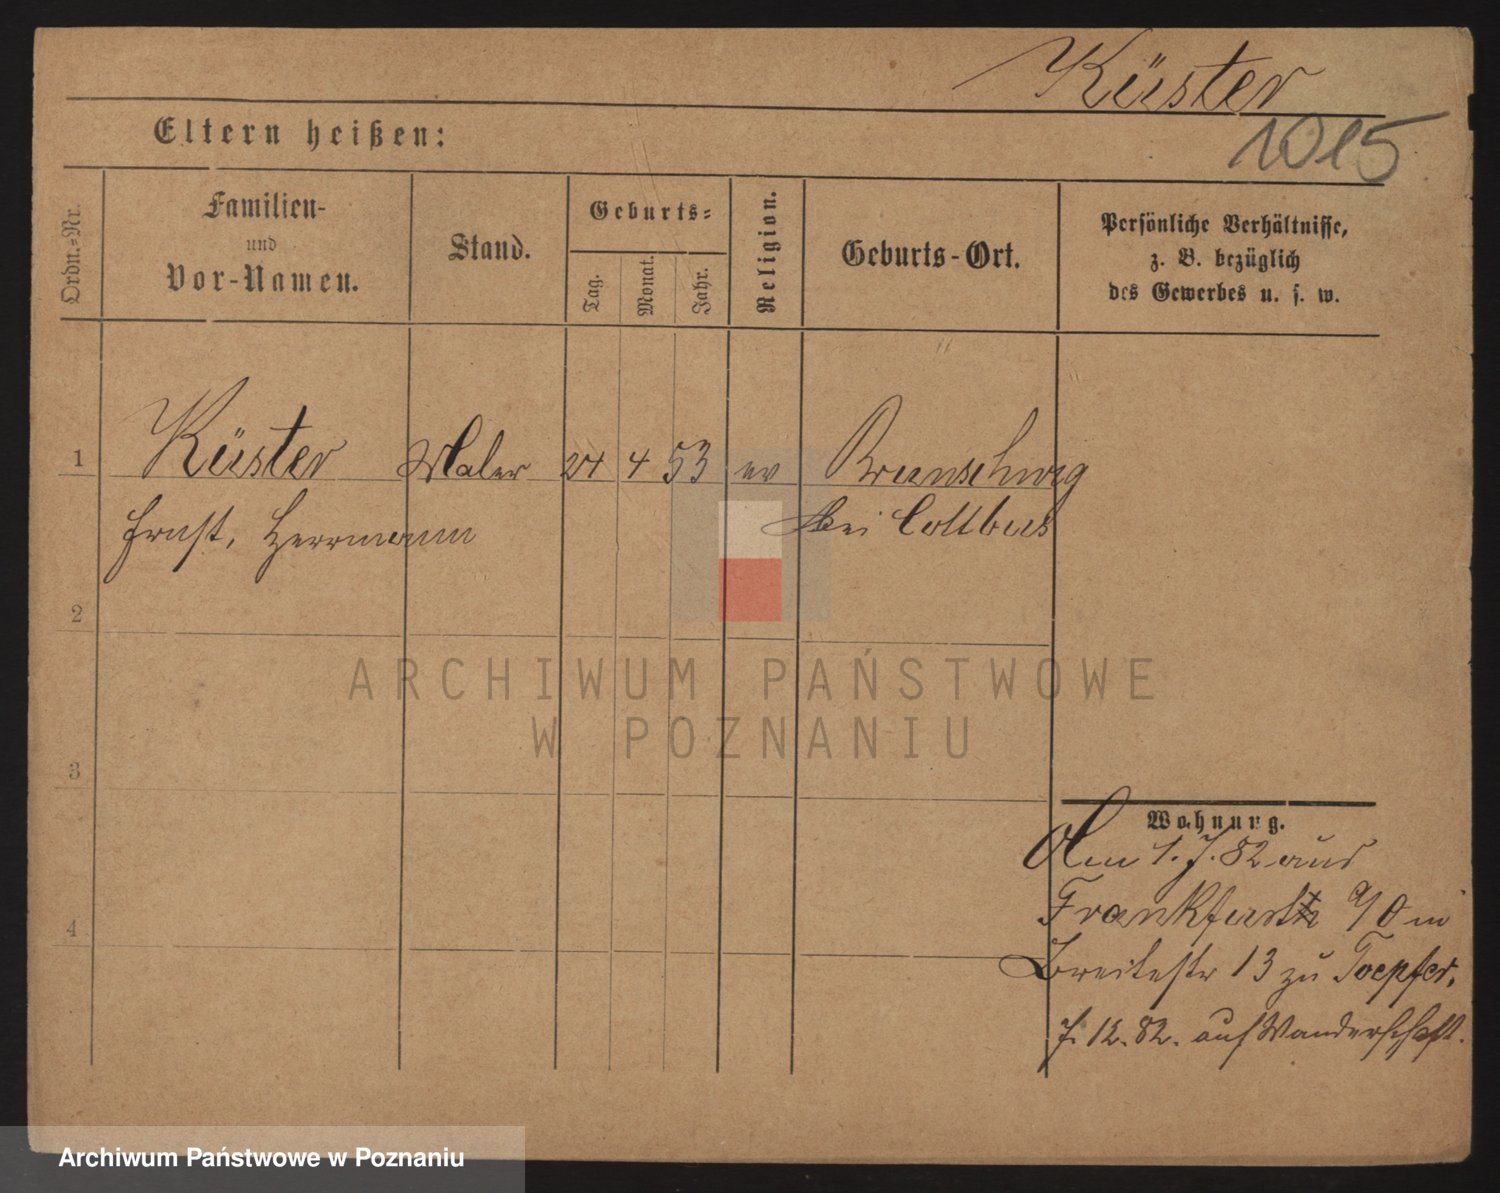 Küster
1015
Eltern heißen:
Ordn.-Nr.
Familien-
und
Vor-Namen.
Stand.
Geburts-
Tag.
Monat.
Jahr.
Religion.
Geburts-Ort.
Persönliche Verhältnisse,
z. B. bezüglich
des Gewerbes u. s. w.
1 Küster Maler 24 4 53 ev Brunschwig
Ernst, Herrmann bei Cottbus
2
3
4
ARCHIWUM PAŃSTWOWE
W POZNANIU
Wohnung.
Am 1. 7. 82 aus
Frankfurt a/O in
Breitestr 13 zu Toepfer.
7. 12. 82. auf Wanderschaft.
Archiwum Państwowe w Poznaniu